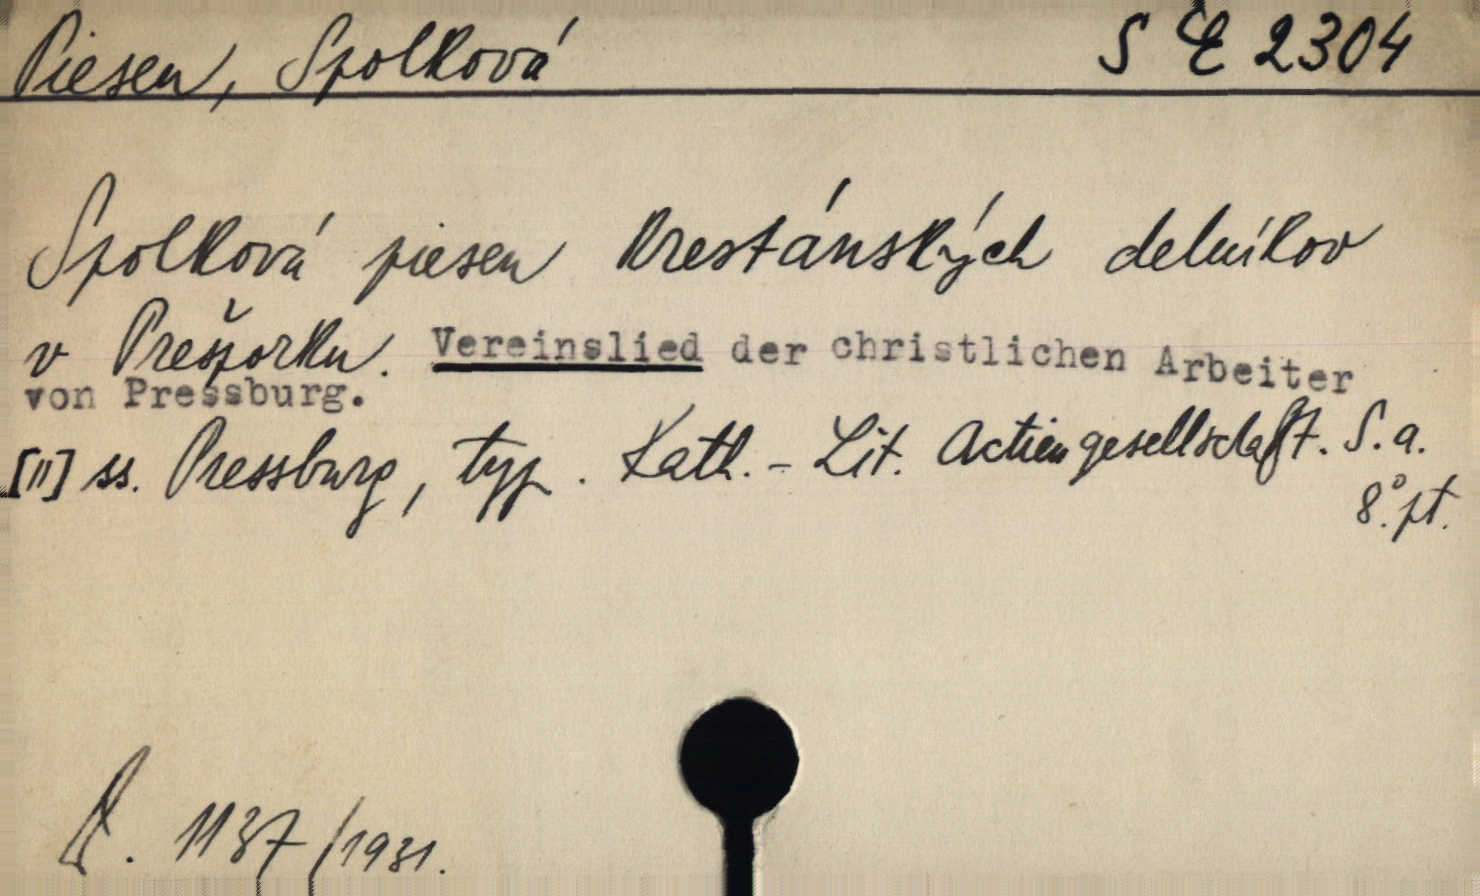 Piesen, Spolková S E 2304
Spolková piesen Krestánských delníkov
v Prešporku. Vereinslied der christlichen Arbeiter
von Pressburg.
[11] ss. Pressburg, typ. Kath.-Lit. Actiengesellschaft. S. a.
8°. pt.
1137/1931.